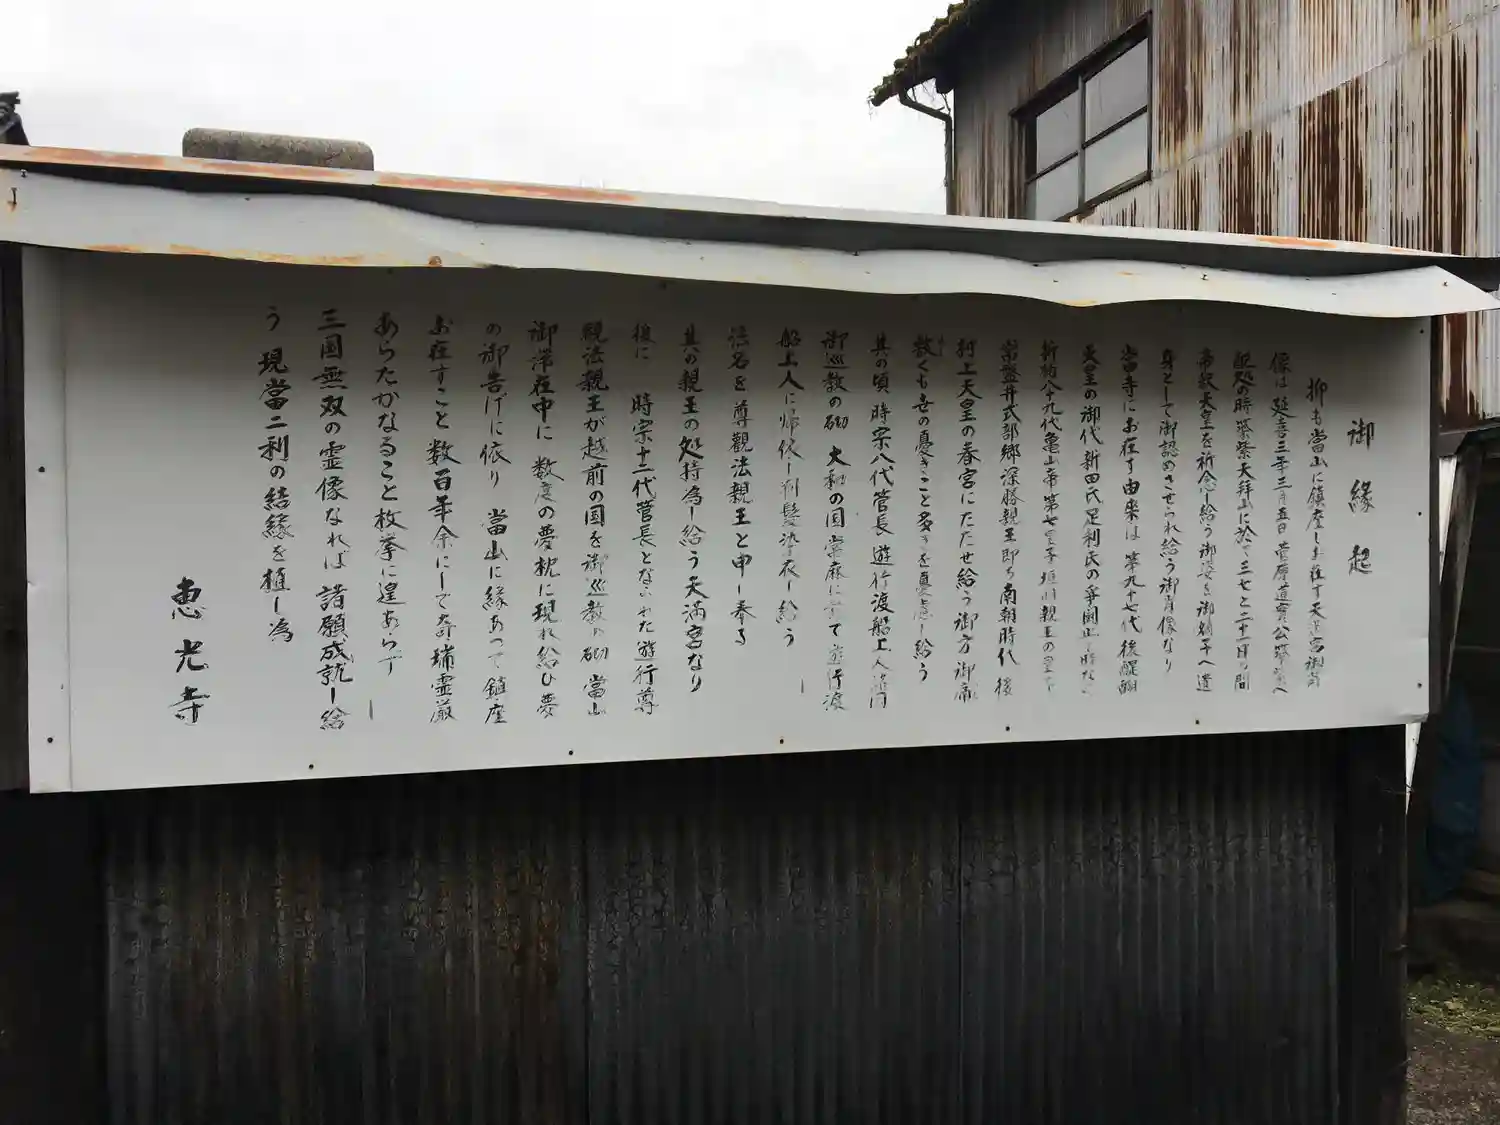 御縁起
抑も當山に鎮座しお在す天満宮御尊
像は延喜三年三月五日 菅原道實公筑紫へ
貶処の時 筑紫天拝山に於て三七と二十一日の間
帝釈天皇を祈念し給う御姿を御嫡子へ遺
身として御認めさせられ給う御肖像なり
當寺にお在す由来は 第九十七代 後醍醐
天皇の御代 新田氏足利氏の争闘止む時なく
新粕八十九代亀山帝 第七皇子 垣川親王の皇子
常盤井式部卿 深勝親王即ち 南朝時代 後
村上天皇の春宮にたたせ給う御方 御帝
数くも世の憂きこと多きを憂慮し給う
其の頃 時宗八代管長 遊行渡船上人法門
御巡教の砌 大和の国 當麻に於て 遊行渡
船上人に帰依し剃髪染衣し給う
法名を尊觀法親王と申し奉る
其の親王の処持為し給う天満宮なり
後に 時宗十二代管長とならわれた遊行尊
觀法親王が越前の国を御巡教の砌 當山
御滞在中に 数度の夢枕に現れ給ひ夢
の御告げに依り 當山に縁あって鎮座
お在すこと数百年余にして奇瑞霊厳
あらたかなること枚挙に遑あらず
三国無双の霊像なれば 諸願成就し給
う 現當二利の結縁を植し為
恵光寺